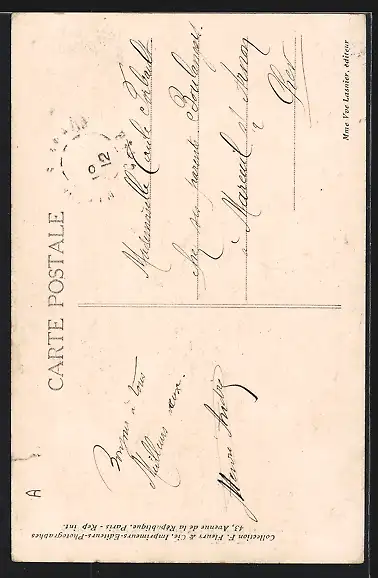 CARTE POSTALE
10
12
Bonjours à tous
Meilleurs vœux.
Mademoiselle
chez ses parents Boulanger
à Mareuil s/ Arnon
Cher
Mme Vve Lasnier, éditeur
Collection F. Fleury & Cie, Imprimeurs-Editeurs-Photographes
43, Avenue de la République, Paris - Rep int.
A